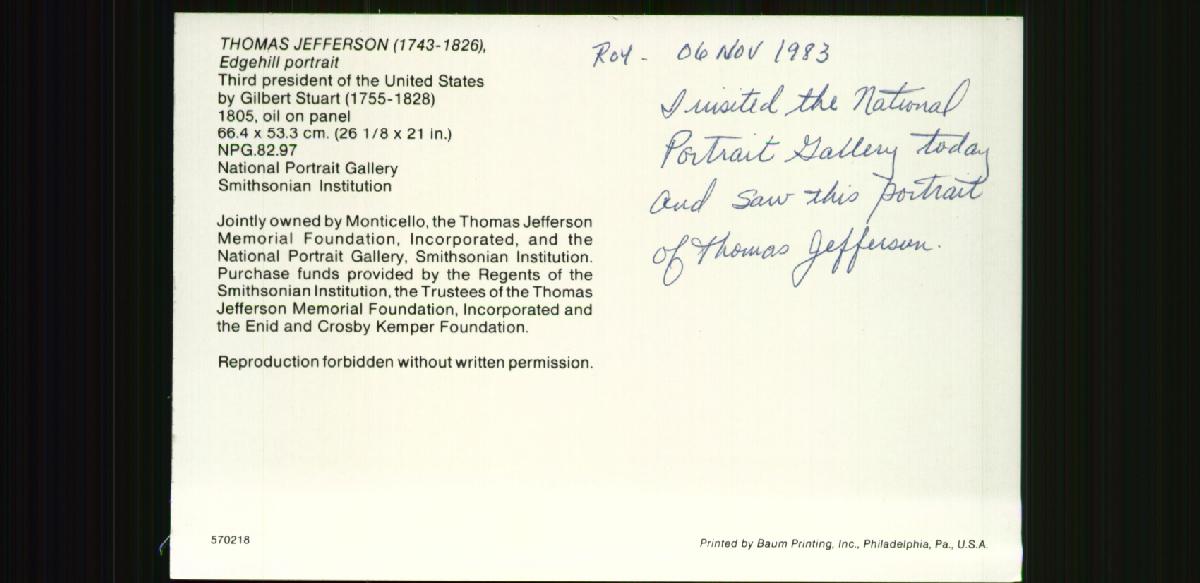 THOMAS JEFFERSON (1743-1826),
Edgehill portrait
Third president of the United States
by Gilbert Stuart (1755-1828)
1805, oil on panel
66.4 x 53.3 cm. (26 1/8 x 21 in.)
NPG.82.97
National Portrait Gallery
Smithsonian Institution
Jointly owned by Monticello, the Thomas Jefferson
Memorial Foundation, Incorporated, and the
National Portrait Gallery, Smithsonian Institution.
Purchase funds provided by the Regents of the
Smithsonian Institution, the Trustees of the Thomas
Jefferson Memorial Foundation, Incorporated and
the Enid and Crosby Kemper Foundation.
Reproduction forbidden without written permission.
Roy - 06 NOV 1983
I visited the National
Portrait Gallery today
and saw this portrait
of Thomas Jefferson.
570218
Printed by Baum Printing, Inc., Philadelphia, Pa., U.S.A.